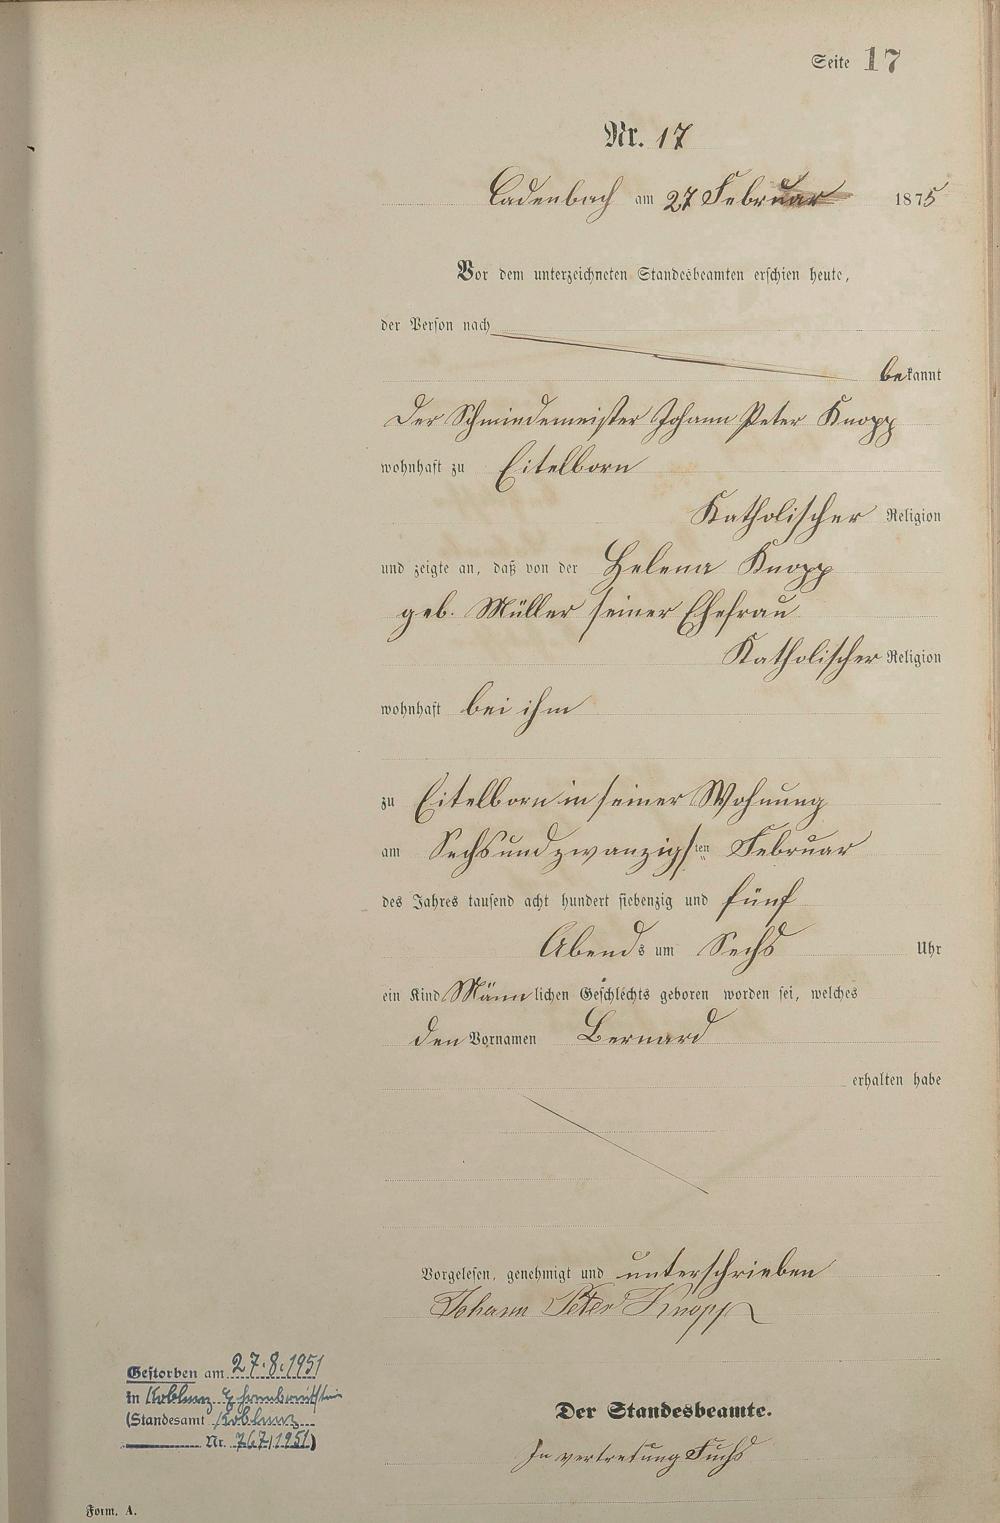 Seite 17
Nr. 17
Cadenbach am 27 Februar 1875
Vor dem unterzeichneten Standesbeamten erschien heute,
der Person nach
bekannt
Der Schmiedemeister Johann Peter Knopp
wohnhaft zu Eitelborn
Katholischer Religion
und zeigte an, daß von der Helena Knopp
geb. Müller seiner Ehefrau
Katholischer Religion
wohnhaft bei ihm
zu Eitelborn in seiner Wohnung
am Sechsundzwanzigsten Februar
des Jahres tausend acht hundert siebenzig und fünf
Abends um Sechs Uhr
ein Kind Männlichen Geschlechts geboren worden sei, welches
den Vornamen Bernard
erhalten habe
Vorgelesen, genehmigt und unterschrieben
Johann Peter Knopp
Gestorben am 27.8.1951
in Koblenz Ehrenbreitstein
(Standesamt Koblenz
Nr. 767/1951)
Der Standesbeamte.
In vertretung Fuchs
Form. A.